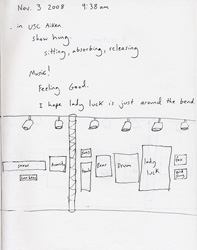 Nov. 3 2008 9:38 am
.. in USC Aiken.
show hung.
sitting, absorbing, releasing
Music!
Feeling Good.
I hope lady luck is just around the bend
Drum
lady
luck